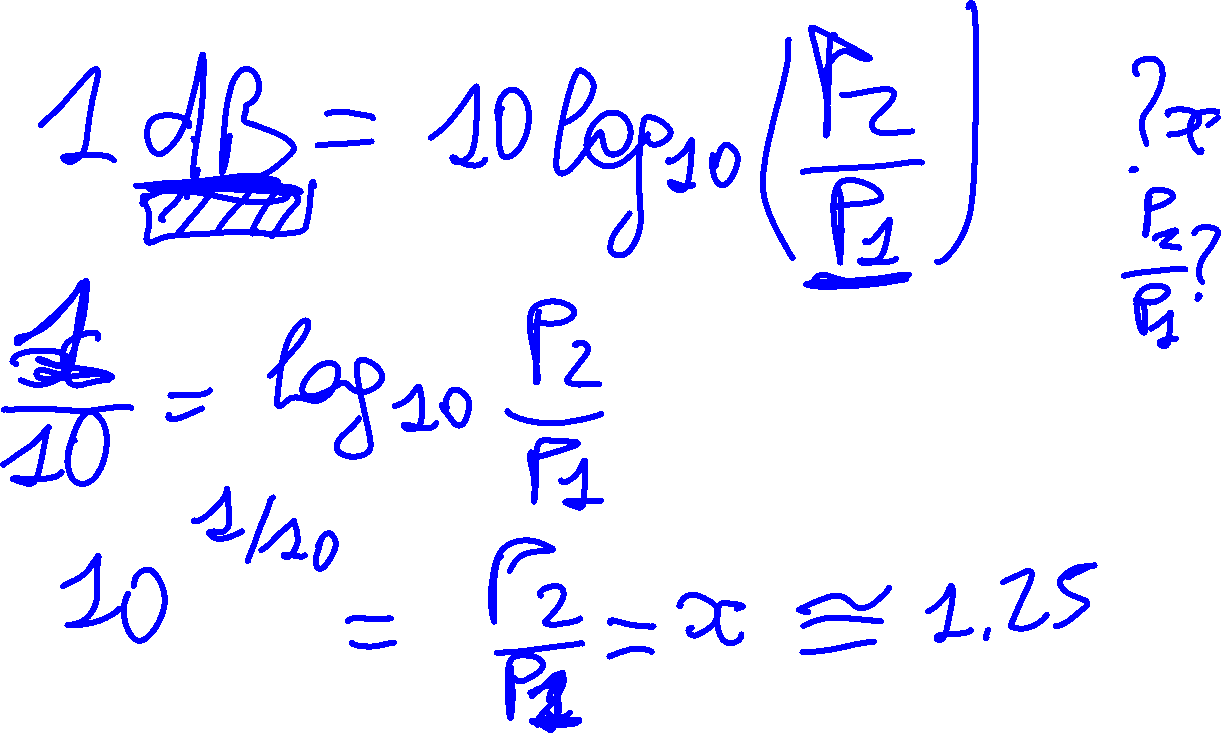 1 dB = 10 log10 (P2/P1) ?x
P2/P1?
1/10 = log10 P2/P1
10^1/10 = P2/P1 = x ≅ 1.25